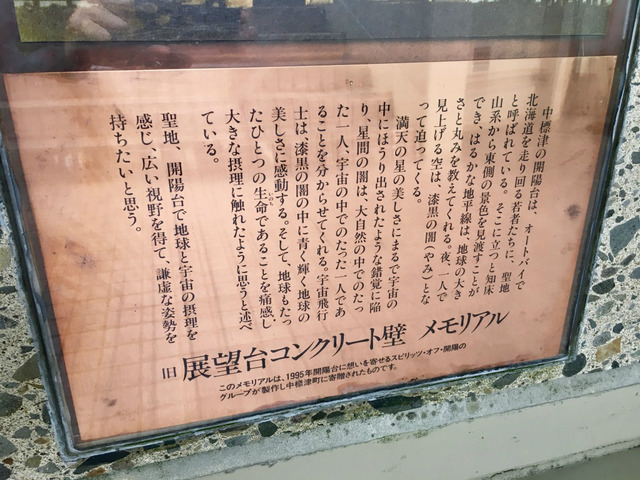 中標津の開陽台は、オートバイで
北海道を走り回る若者たちに、聖地
と呼ばれている。そこに立つと知床
山系から東側の景色を見渡すことが
でき、はるかな地平線は、地球の大き
さと丸みを教えてくれる。夜、一人で
見上げる空は、漆黒の闇(やみ)とな
って迫ってくる。
満天の星の美しさにまるで宇宙の
中にほうり出されたような錯覚に陥
り、星間の闇は、大自然の中でのたっ
た一人、宇宙の中でのたった一人であ
ることを分からせてくれる。宇宙飛行
士は、漆黒の闇の中に青く輝く地球の
美しさに感動する。そして、地球もたっ
たひとつの生命であることを痛感し、
大きな摂理に触れたように思うと述べ
ている。
聖地、開陽台で地球と宇宙の摂理を
感じ、広い視野を得て、謙虚な姿勢を
持ちたいと思う。
旧 展望台コンクリート壁 メモリアル
このメモリアルは、1995年開陽台に想いを寄せるスピリッツ・オブ・開陽の
グループが製作し中標津町に寄贈されたものです。